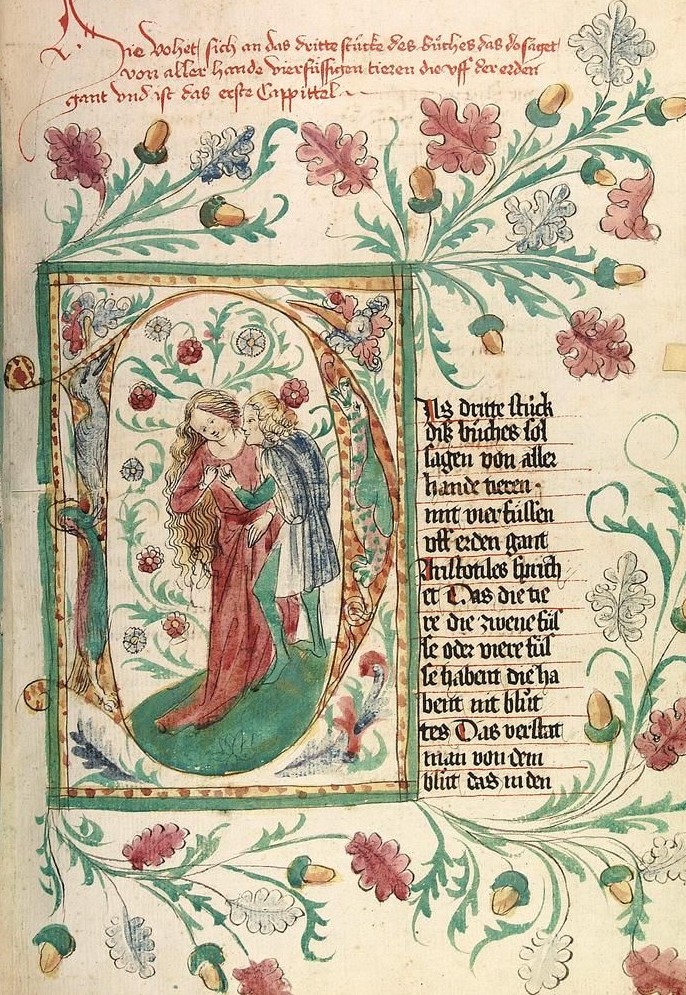 Hie vohet sich an das dritte stücke des büches das do saget
von aller hande vierfüssigen tieren die vff der erden
gant vnd ist das erste Cappittel
Das dritte stück
diß büches sol
sagen von aller
hande tieren
mit vier füssen
vff erden gant
Aristotiles sprich
et Das die tie
re die zwene füs
se oder viere füs
se habent die ha
bent nit blüt
tes Das verstat
man von dem
blüt das in den